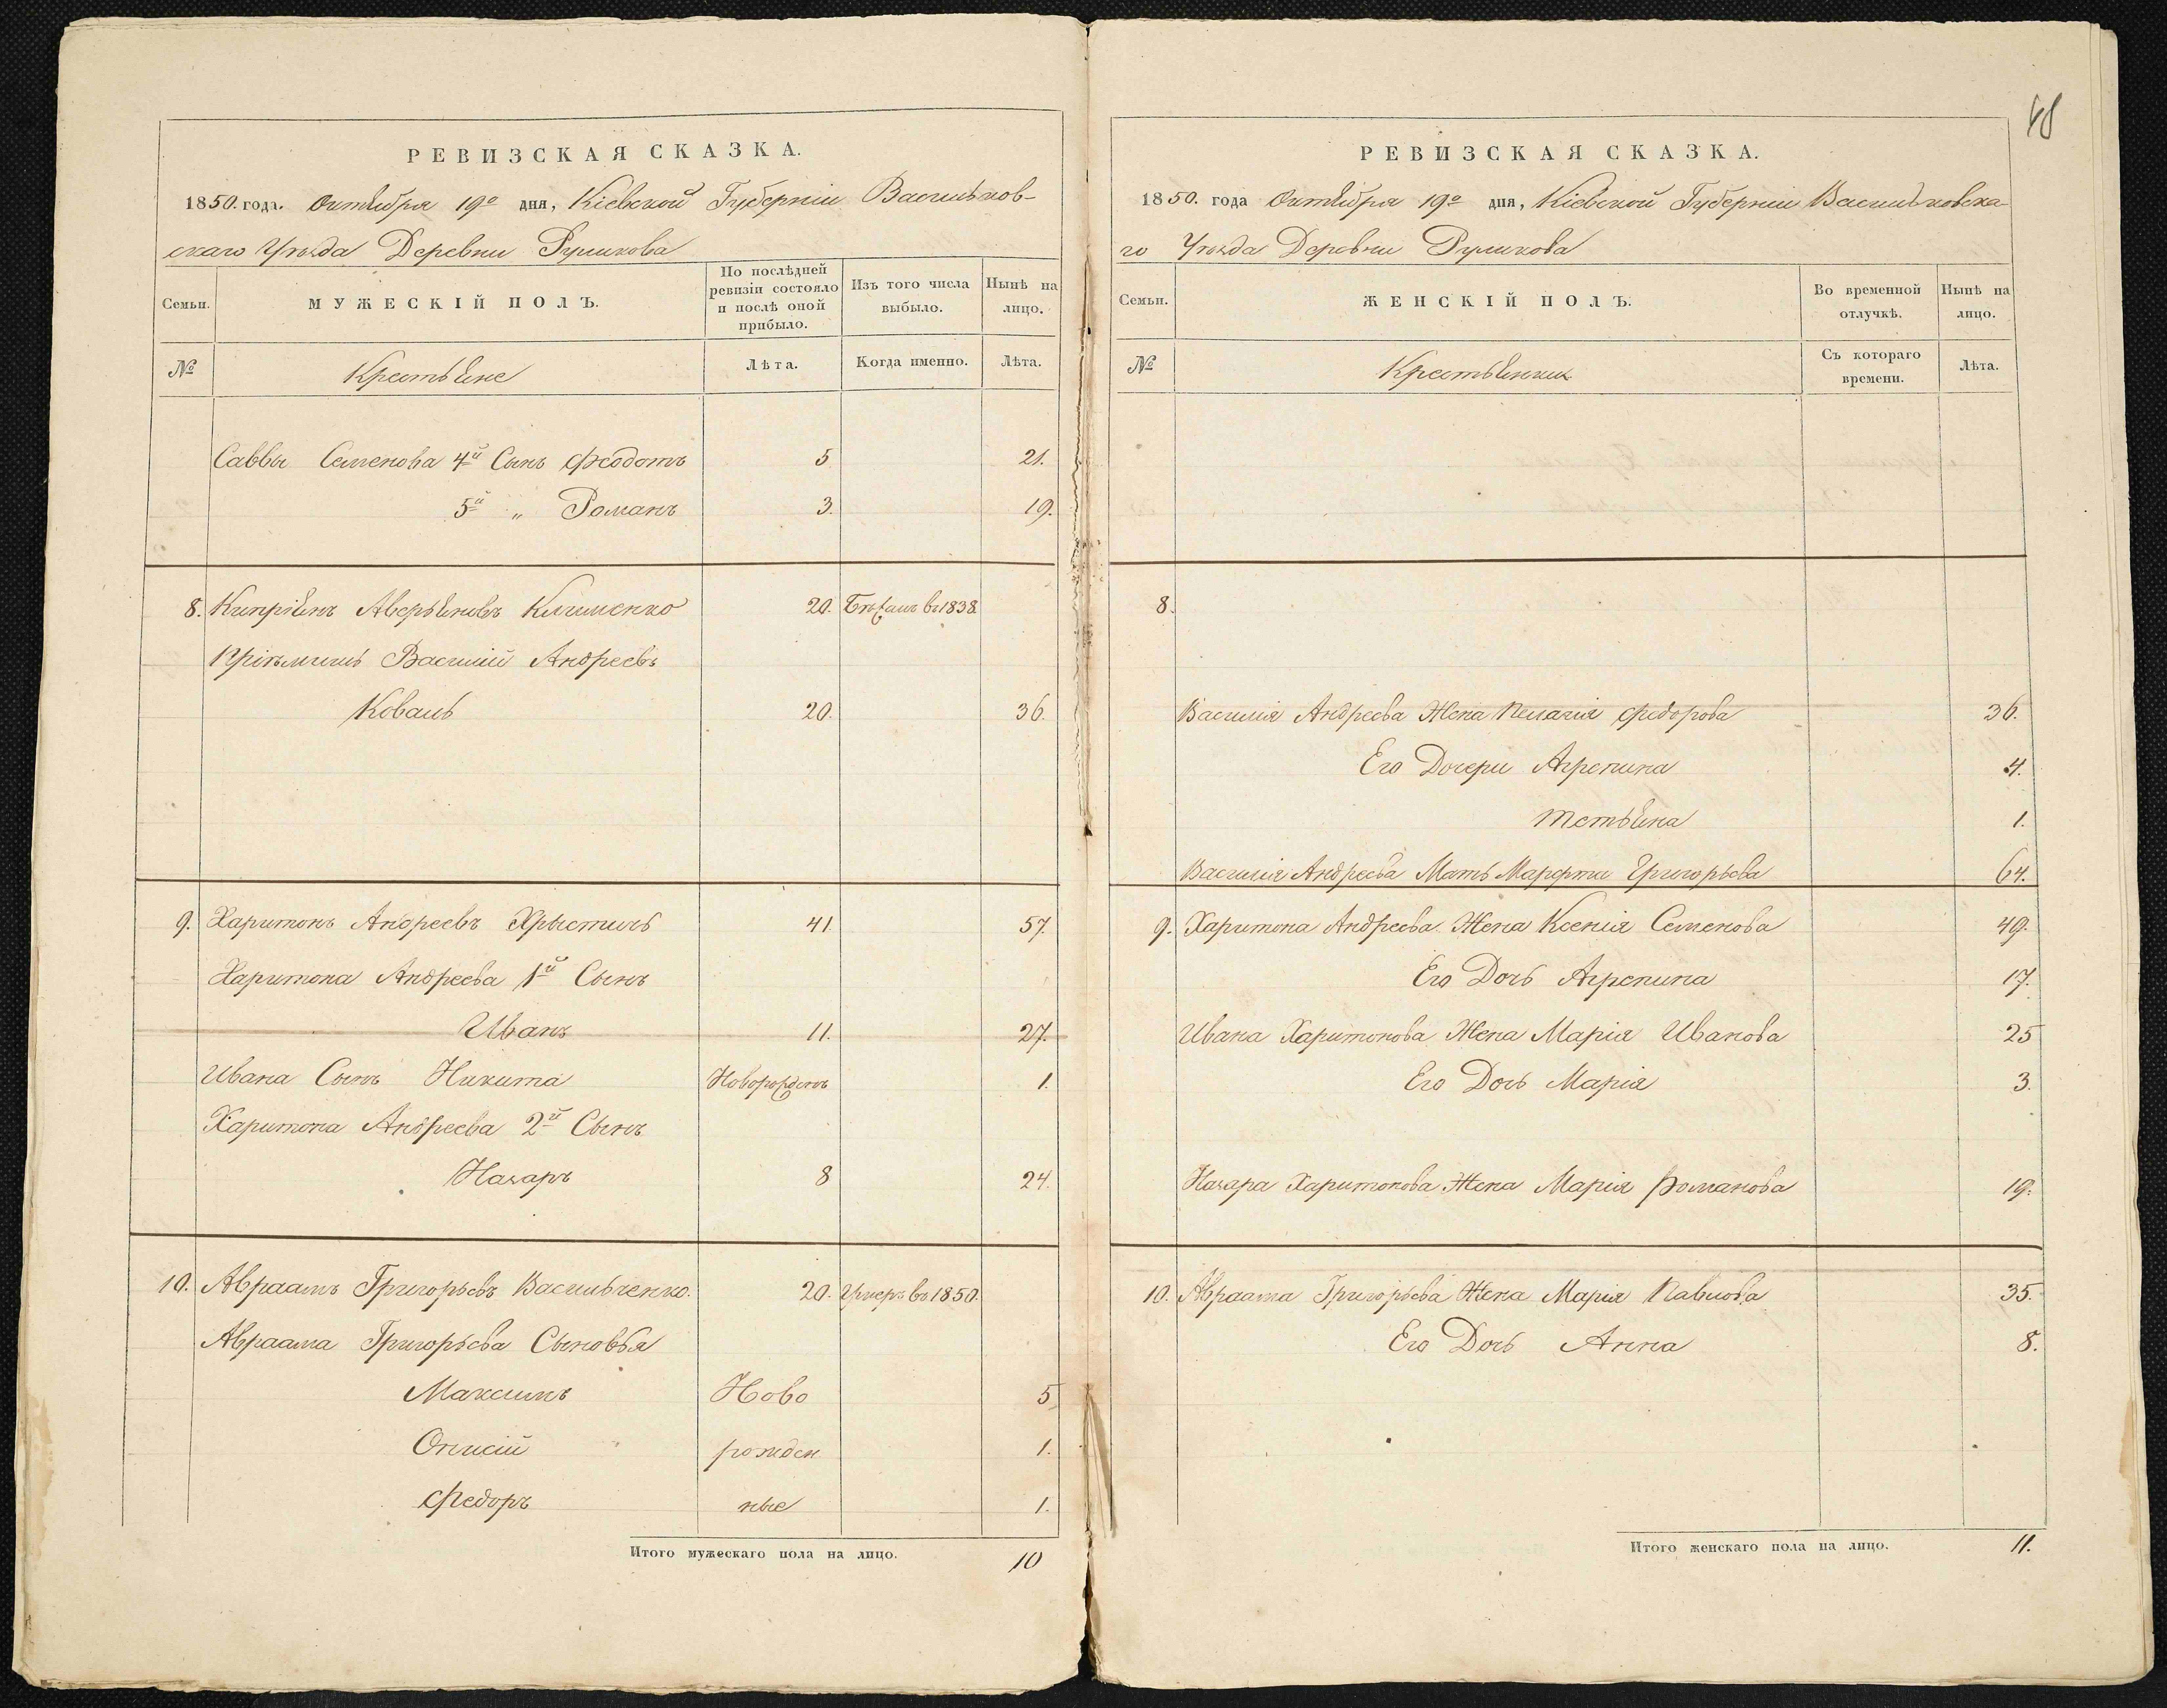 РЕВИЗСКАЯ СКАЗКА.
1850. года. Октября 19го дня, Кіевской Губерніи Васильков-
скаго Уѣзда Деревни Руликова
Семьи.
МУЖЕСКІЙ ПОЛЪ.
По послѣдней ревизіи состояло и послѣ оной прибыло.
Изъ того числа выбыло.
Нынѣ на лицо.
№
Крестьяне
Лѣта.
Когда именно.
Лѣта.
Саввы Семенова 4й Сынъ Ѳеодотъ 5 21.
5й „ Романъ 3. 19.
8. Кипріянъ Аверьяновъ Клименко 20. Бѣжалъ въ 1838
Пріѣмышъ Василій Андреевъ
Коваль 20. 36.
9. Харитонъ Андреевъ Хрыстичъ 41. 57.
Харитона Андреева 1й Сынъ
Иванъ 11. 27.
Ивана Сынъ Никита Новорожденъ 1.
Харитона Андреева 2й Сынъ
Назаръ 8 24.
10. Авраамъ Григорьевъ Васильченко. 20. Умеръ въ 1850.
Авраама Григорьева Сыновья
Максимъ Ново 5
Онисій рожден 1.
Федоръ ные 1.
Итого мужескаго пола на лицо. 10
48
РЕВИЗСКАЯ СКАЗКА.
1850. года Октября 19го дня, Кіевской Губерніи Васильковска
го Уѣзда Деревни Руликова
Семьи.
ЖЕНСКІЙ ПОЛЪ.
Во временной отлучкѣ.
Нынѣ на лицо.
№
Крестьянки
Съ котораго времени.
Лѣта.
8.
Василія Андреева Жена Пелагія Федорова 36.
Его Дочери Агрепина 4.
Тетьяна 1.
Василія Андреева Мать Марфта Григорьева 64.
9. Харитона Андреева Жена Ксенія Семенова 49.
Его Дочь Агрепина 17.
Ивана Харитонова Жена Марія Иванова 25
Его Дочь Марія 3.
Назара Харитонова Жена Марія Романова 19.
10. Авраама Григорьева Жена Марія Павлова 35.
Его Дочь Анна 8.
Итого женскаго пола на лицо. 11.